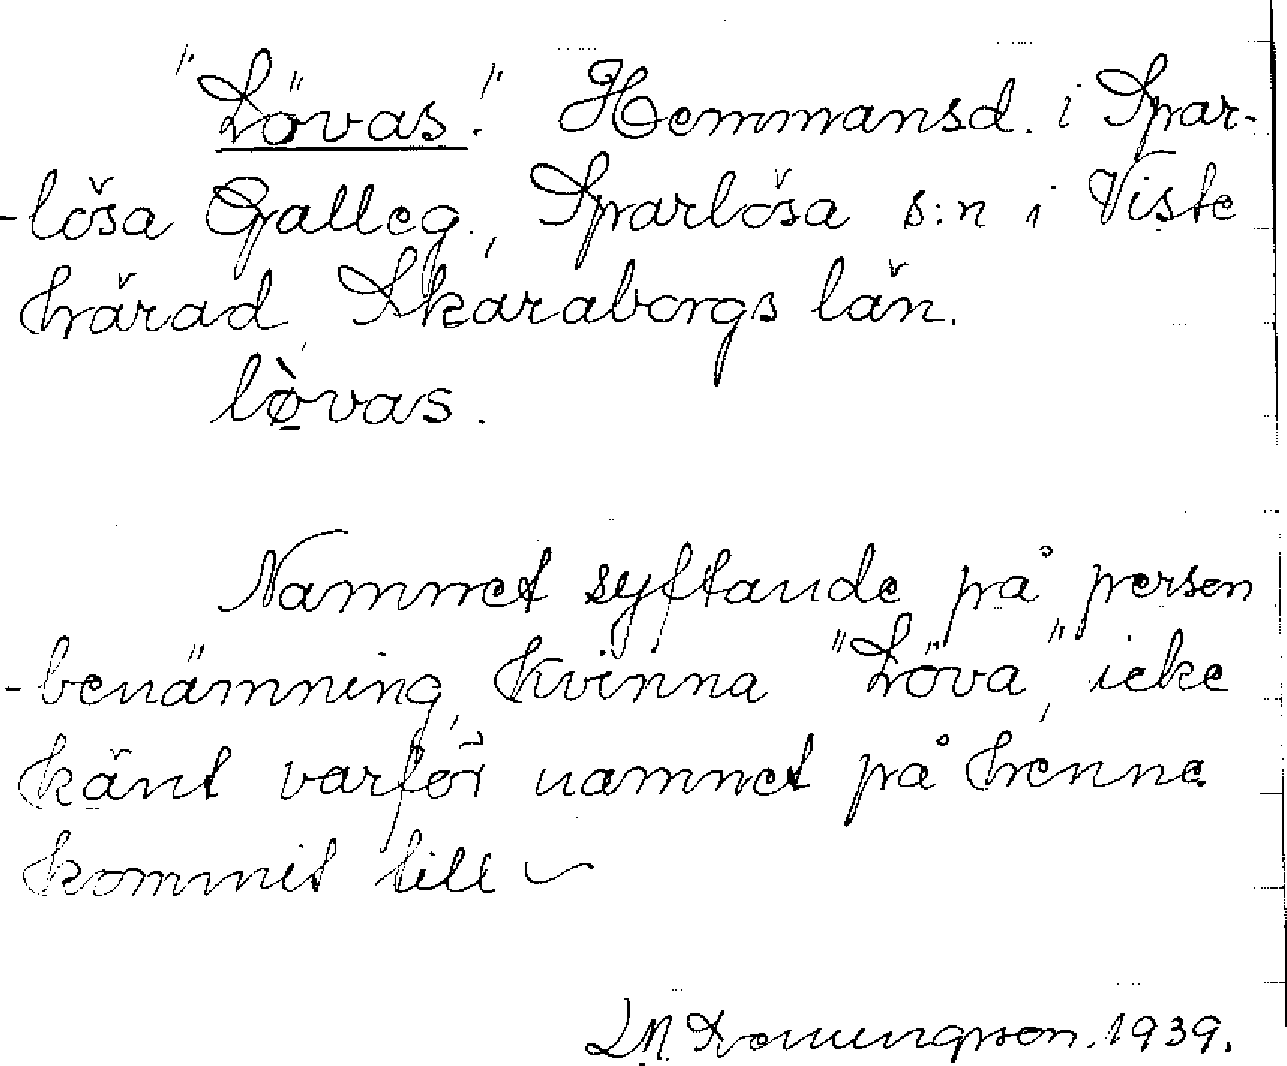 "Lövas." Hemmansd. i Spar-
-lösa Galleg., Sparlösa s:n i Viste
härad, Skaraborgs län.
lø̀vas.
Namnet syftande på person
-benämning, kvinna "Löva," icke
känt varför namnet på henne
kommit till
1939.